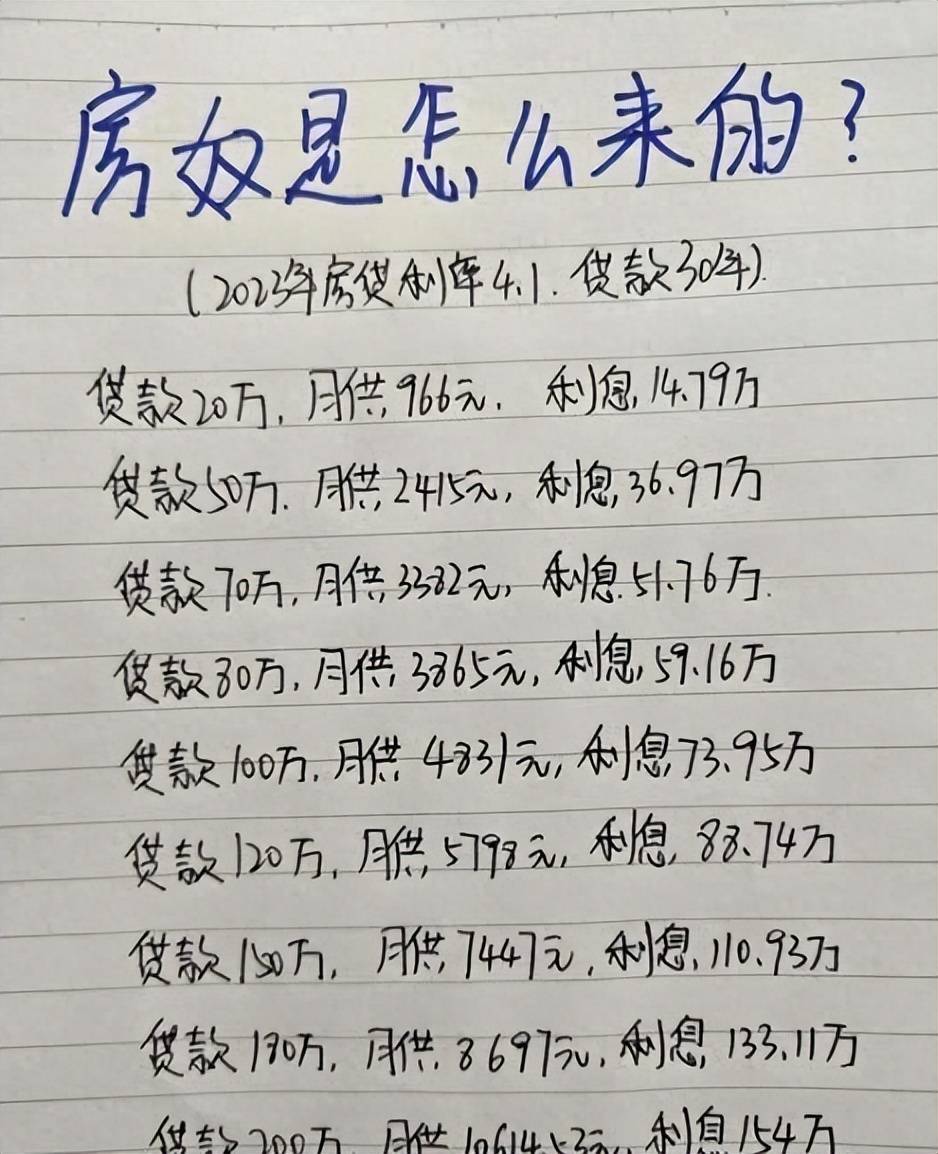 房奴是怎么来的?
(2023年房贷利率4.1.贷款30年).
贷款20万,月供,966元,利息,14.79万
贷款50万.月供,2415元,利息,36.97万
贷款70万,月供,3382元,利息.51.76万.
贷款80万,月供,3865元,利息,59.16万
贷款100万,月供,4831元,利息,73.95万
贷款120万,月供,5798元,利息,88.74万
贷款150万,月供,7447元,利息,110.93万
贷款180万,月供,8697元,利息,133.11万
贷款200万 月供10614.53元,利息154万